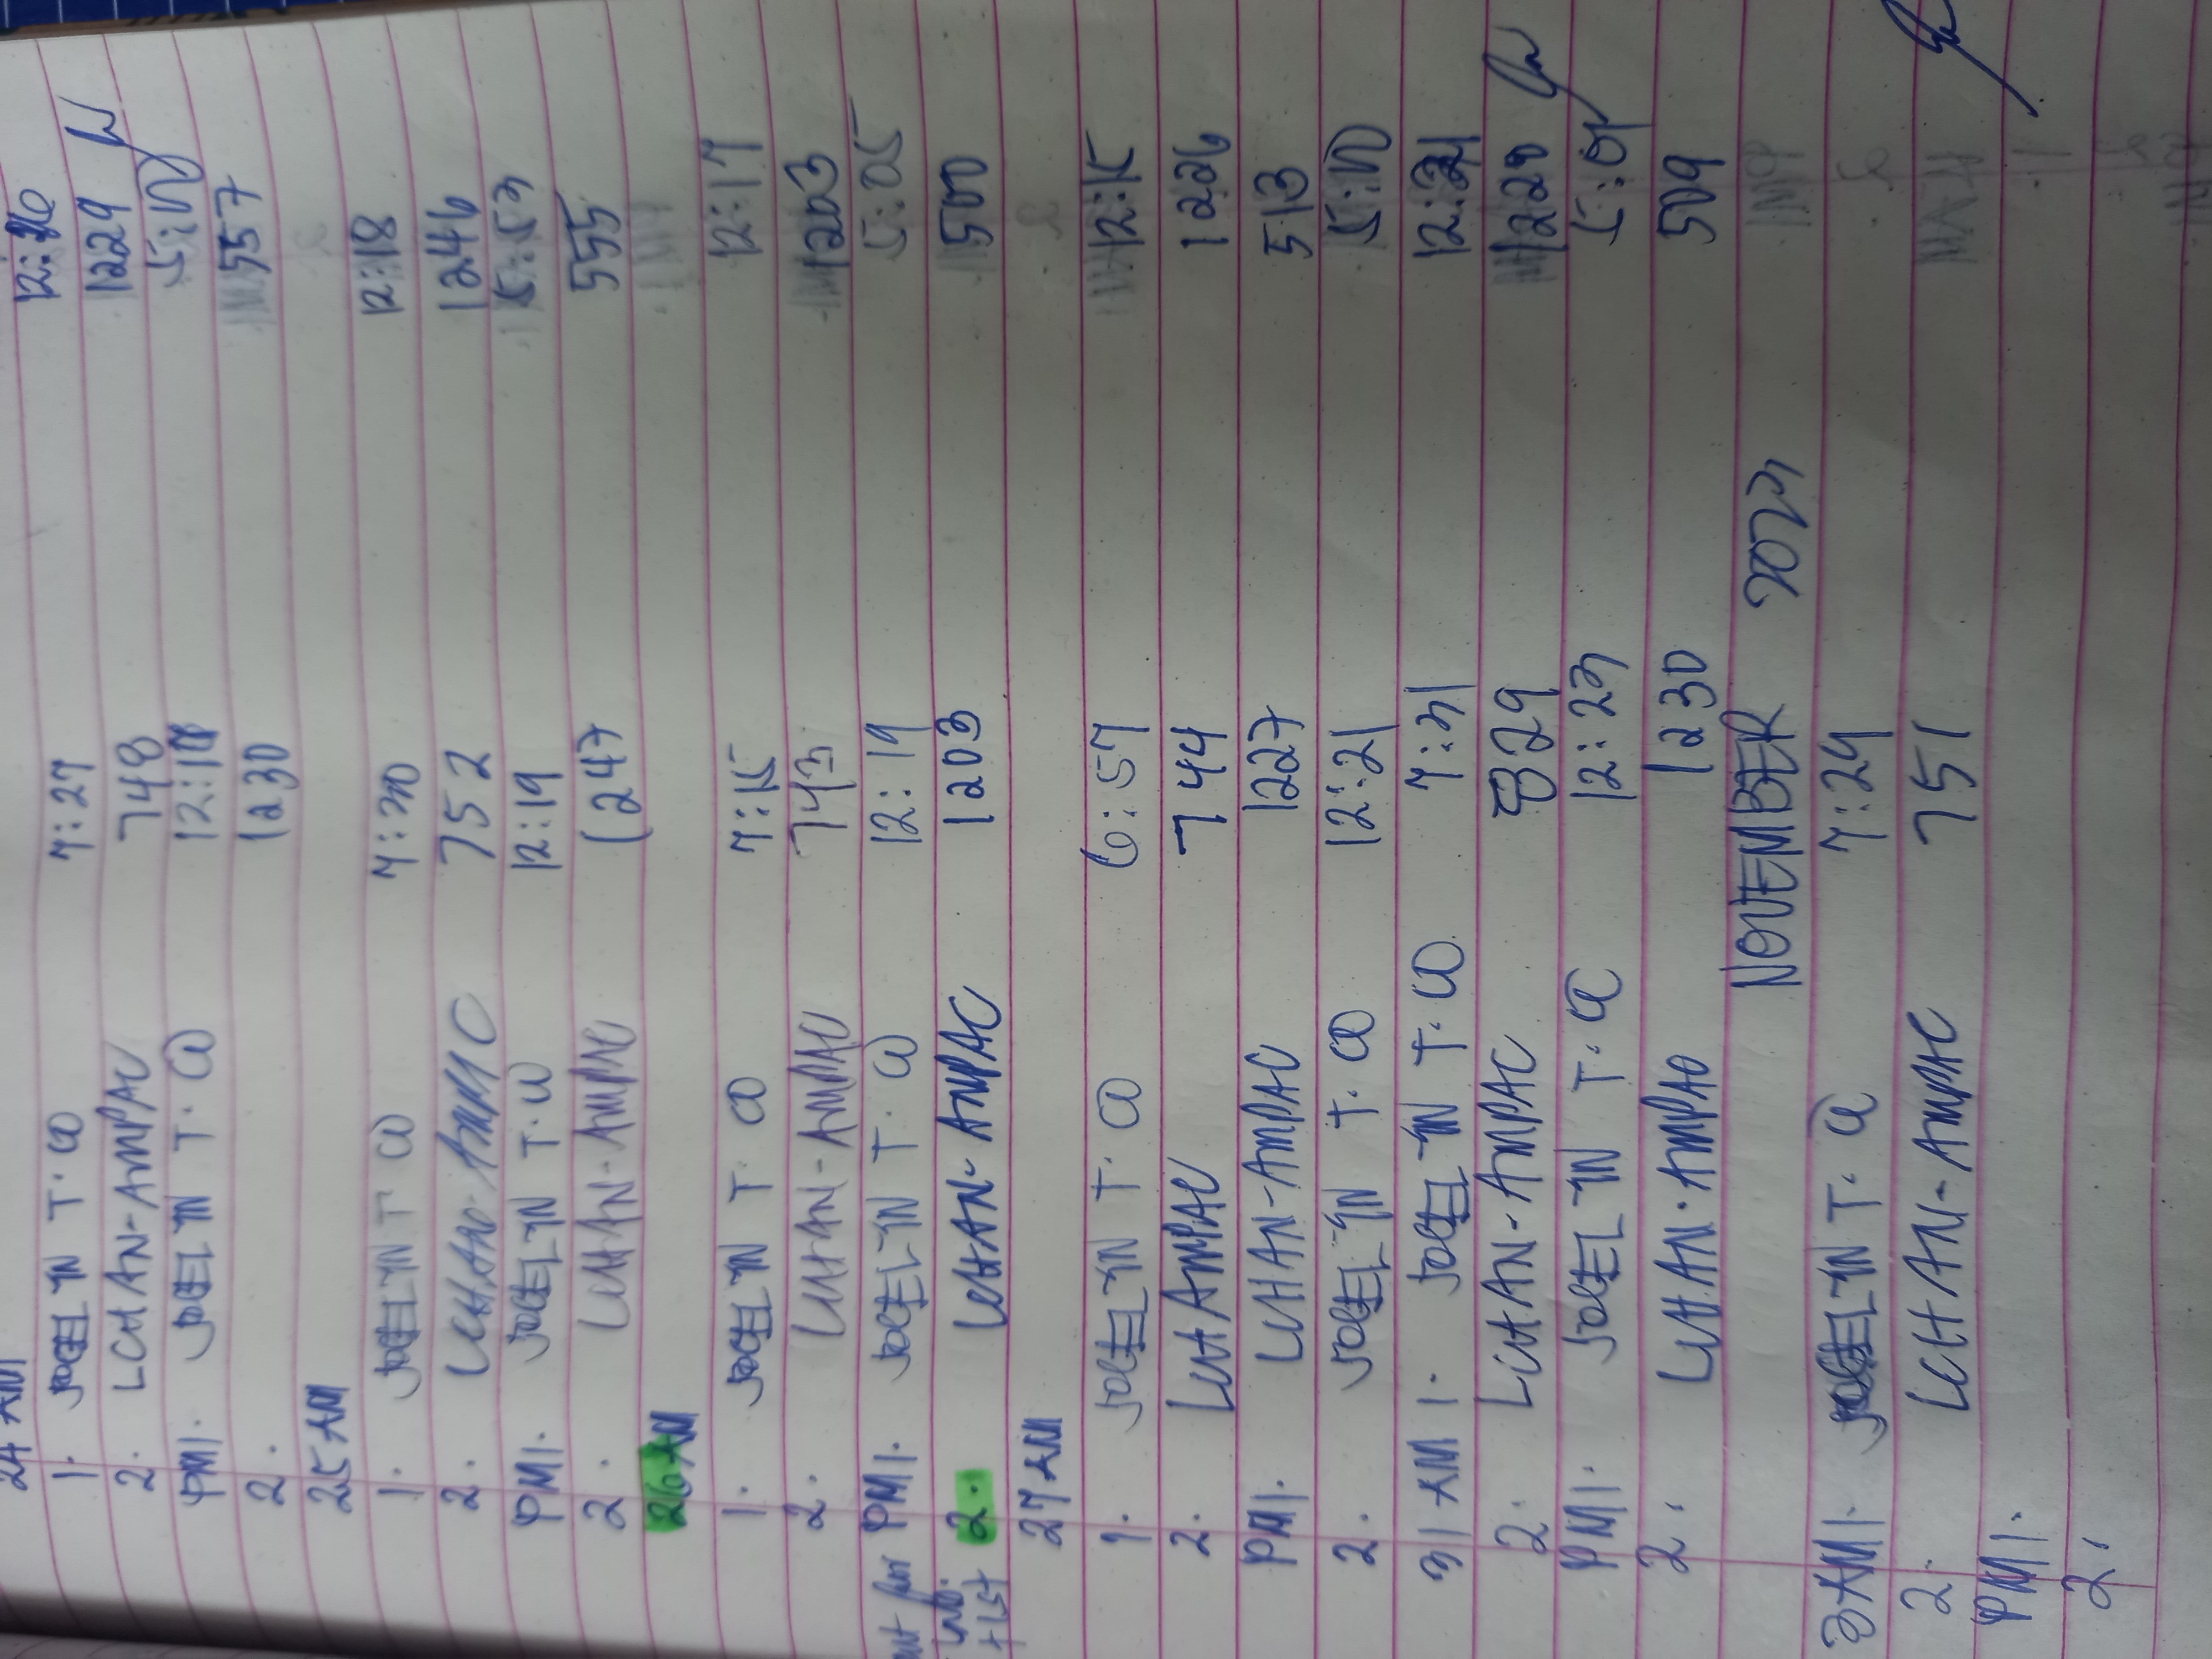 24 AM
1. JOCELYN T. 7:27
2. LCHAN-AMPAC 748 1229
PM 1. JOCELYN T. 5:10
2. 1230 557
25 AM
1. JOCELYN T 7:30 12:18
2. LCHAN-AMPAC 752 1246
PM 1. JOCELYN T. 12:19 5:53
2. LCHAN-AMPAC 1247 555
26 AM
1. JOCELYN T. 7:15 12:17
2. LCHAN-AMPAC 743 1203
PM 1. JOCELYN T. 12:19 5:05
2. LCHAN-AMPAC 1203 500
27 AM
1. JOCELYN T. 6:57 12:15
2. LCHAN AMPAC 744 1226
PM 1. LCHAN-AMPAC 1227 513
2. JOCELYN T. 12:21 5:10
31 AM 1. JOCELYN T. 7:31
2. LCHAN-AMPAC 829 1229
PM 1. JOCELYN T. 12:23 5:01
2. LCHAN-AMPAC 1230 509
NOVEMBER 2023
3 AM 1. JOCELYN T. 7:29
2. LCHAN-AMPAC 751
PM 1.
2.